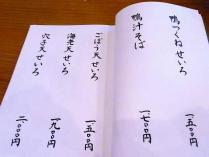 鴨つくねせいろ 一五〇〇円
鴨汁そば 一七〇〇円
ごぼう天せいろ 一五〇〇円
海老天せいろ 一九〇〇円
穴子天せいろ 二〇〇〇円